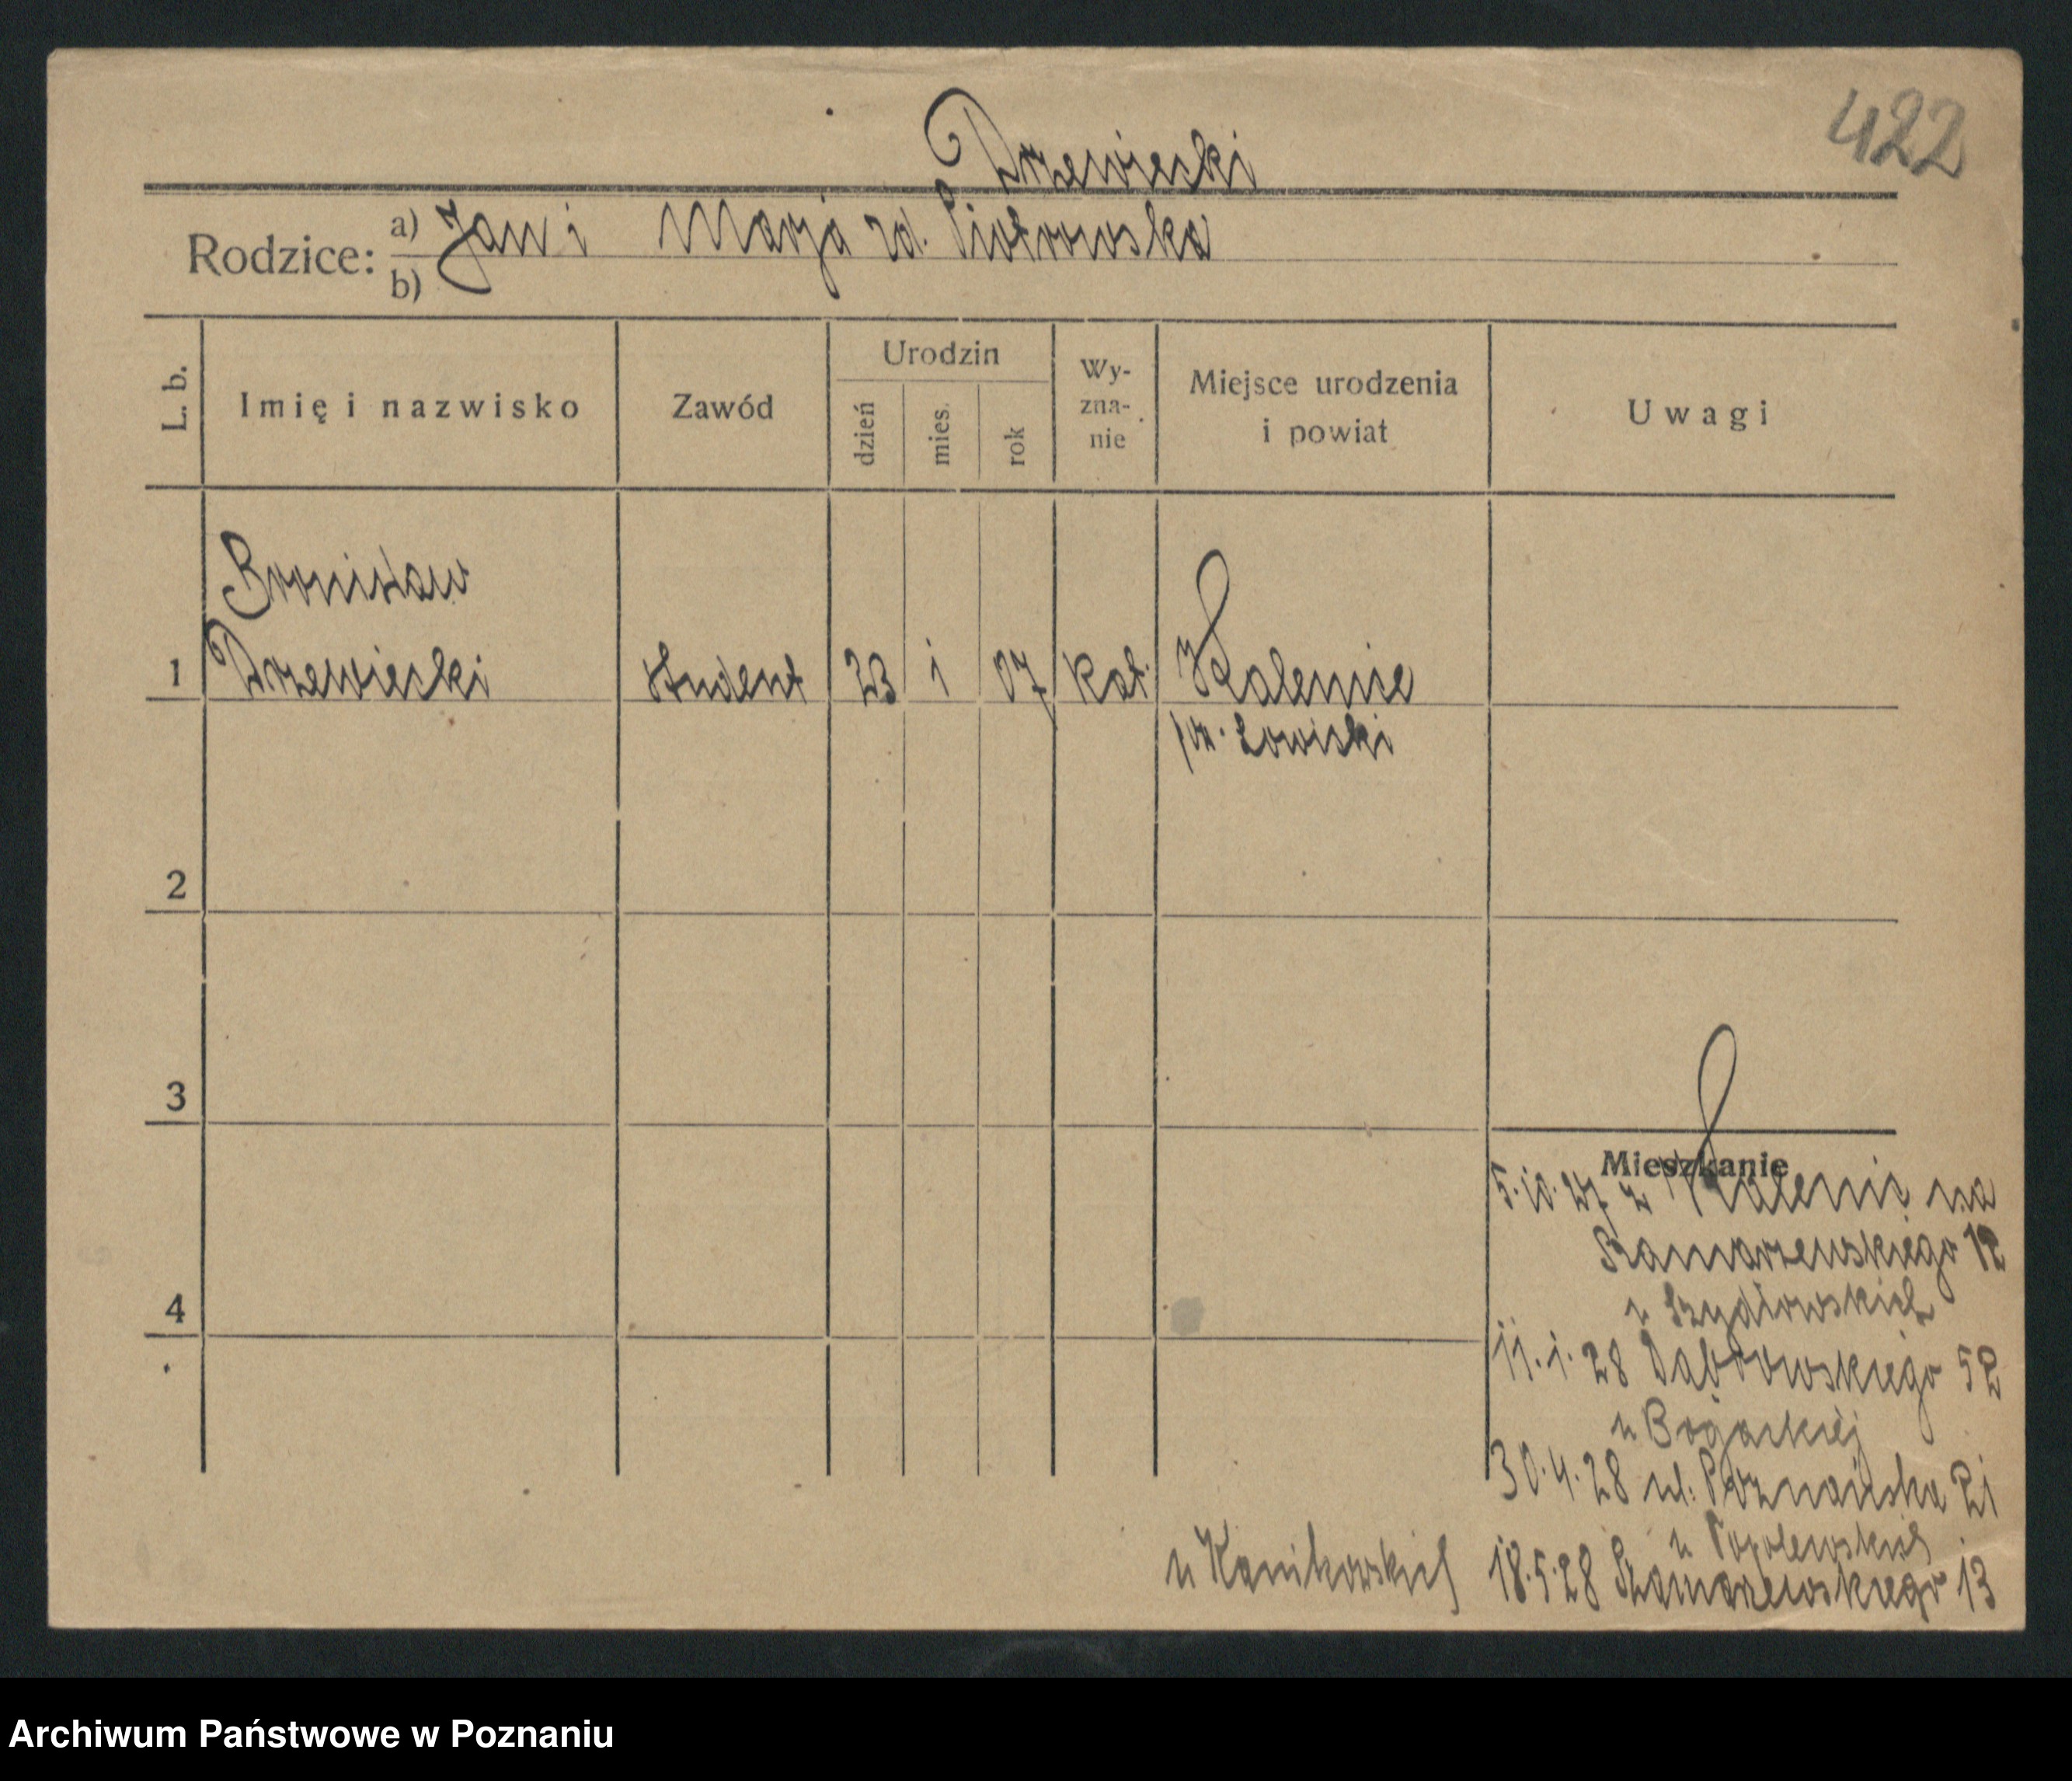 422
Drzewiecki
Rodzice: a) Jan i Marja rd. Piotrowska
b)
L. b. Imię i nazwisko Zawód Urodzin dzień mies. rok Wy-zna-nie Miejsce urodzenia i powiat Uwagi
Bronisław
1 Drzewiecki student 23 1 07 kat. Kalenice
pow. Łowicki
2
3
Mieszkanie
5.10.27 z Kalenic na
Szamarzewskiego 12
4
u Szydłowskich
11.1.28 Dąbrowskiego 52
u Bogackiej
30.4.28 ul. Poznańska 21
u
u Kanikowskich 18.5.28 Szamarzewskiego 13
Archiwum Państwowe w Poznaniu